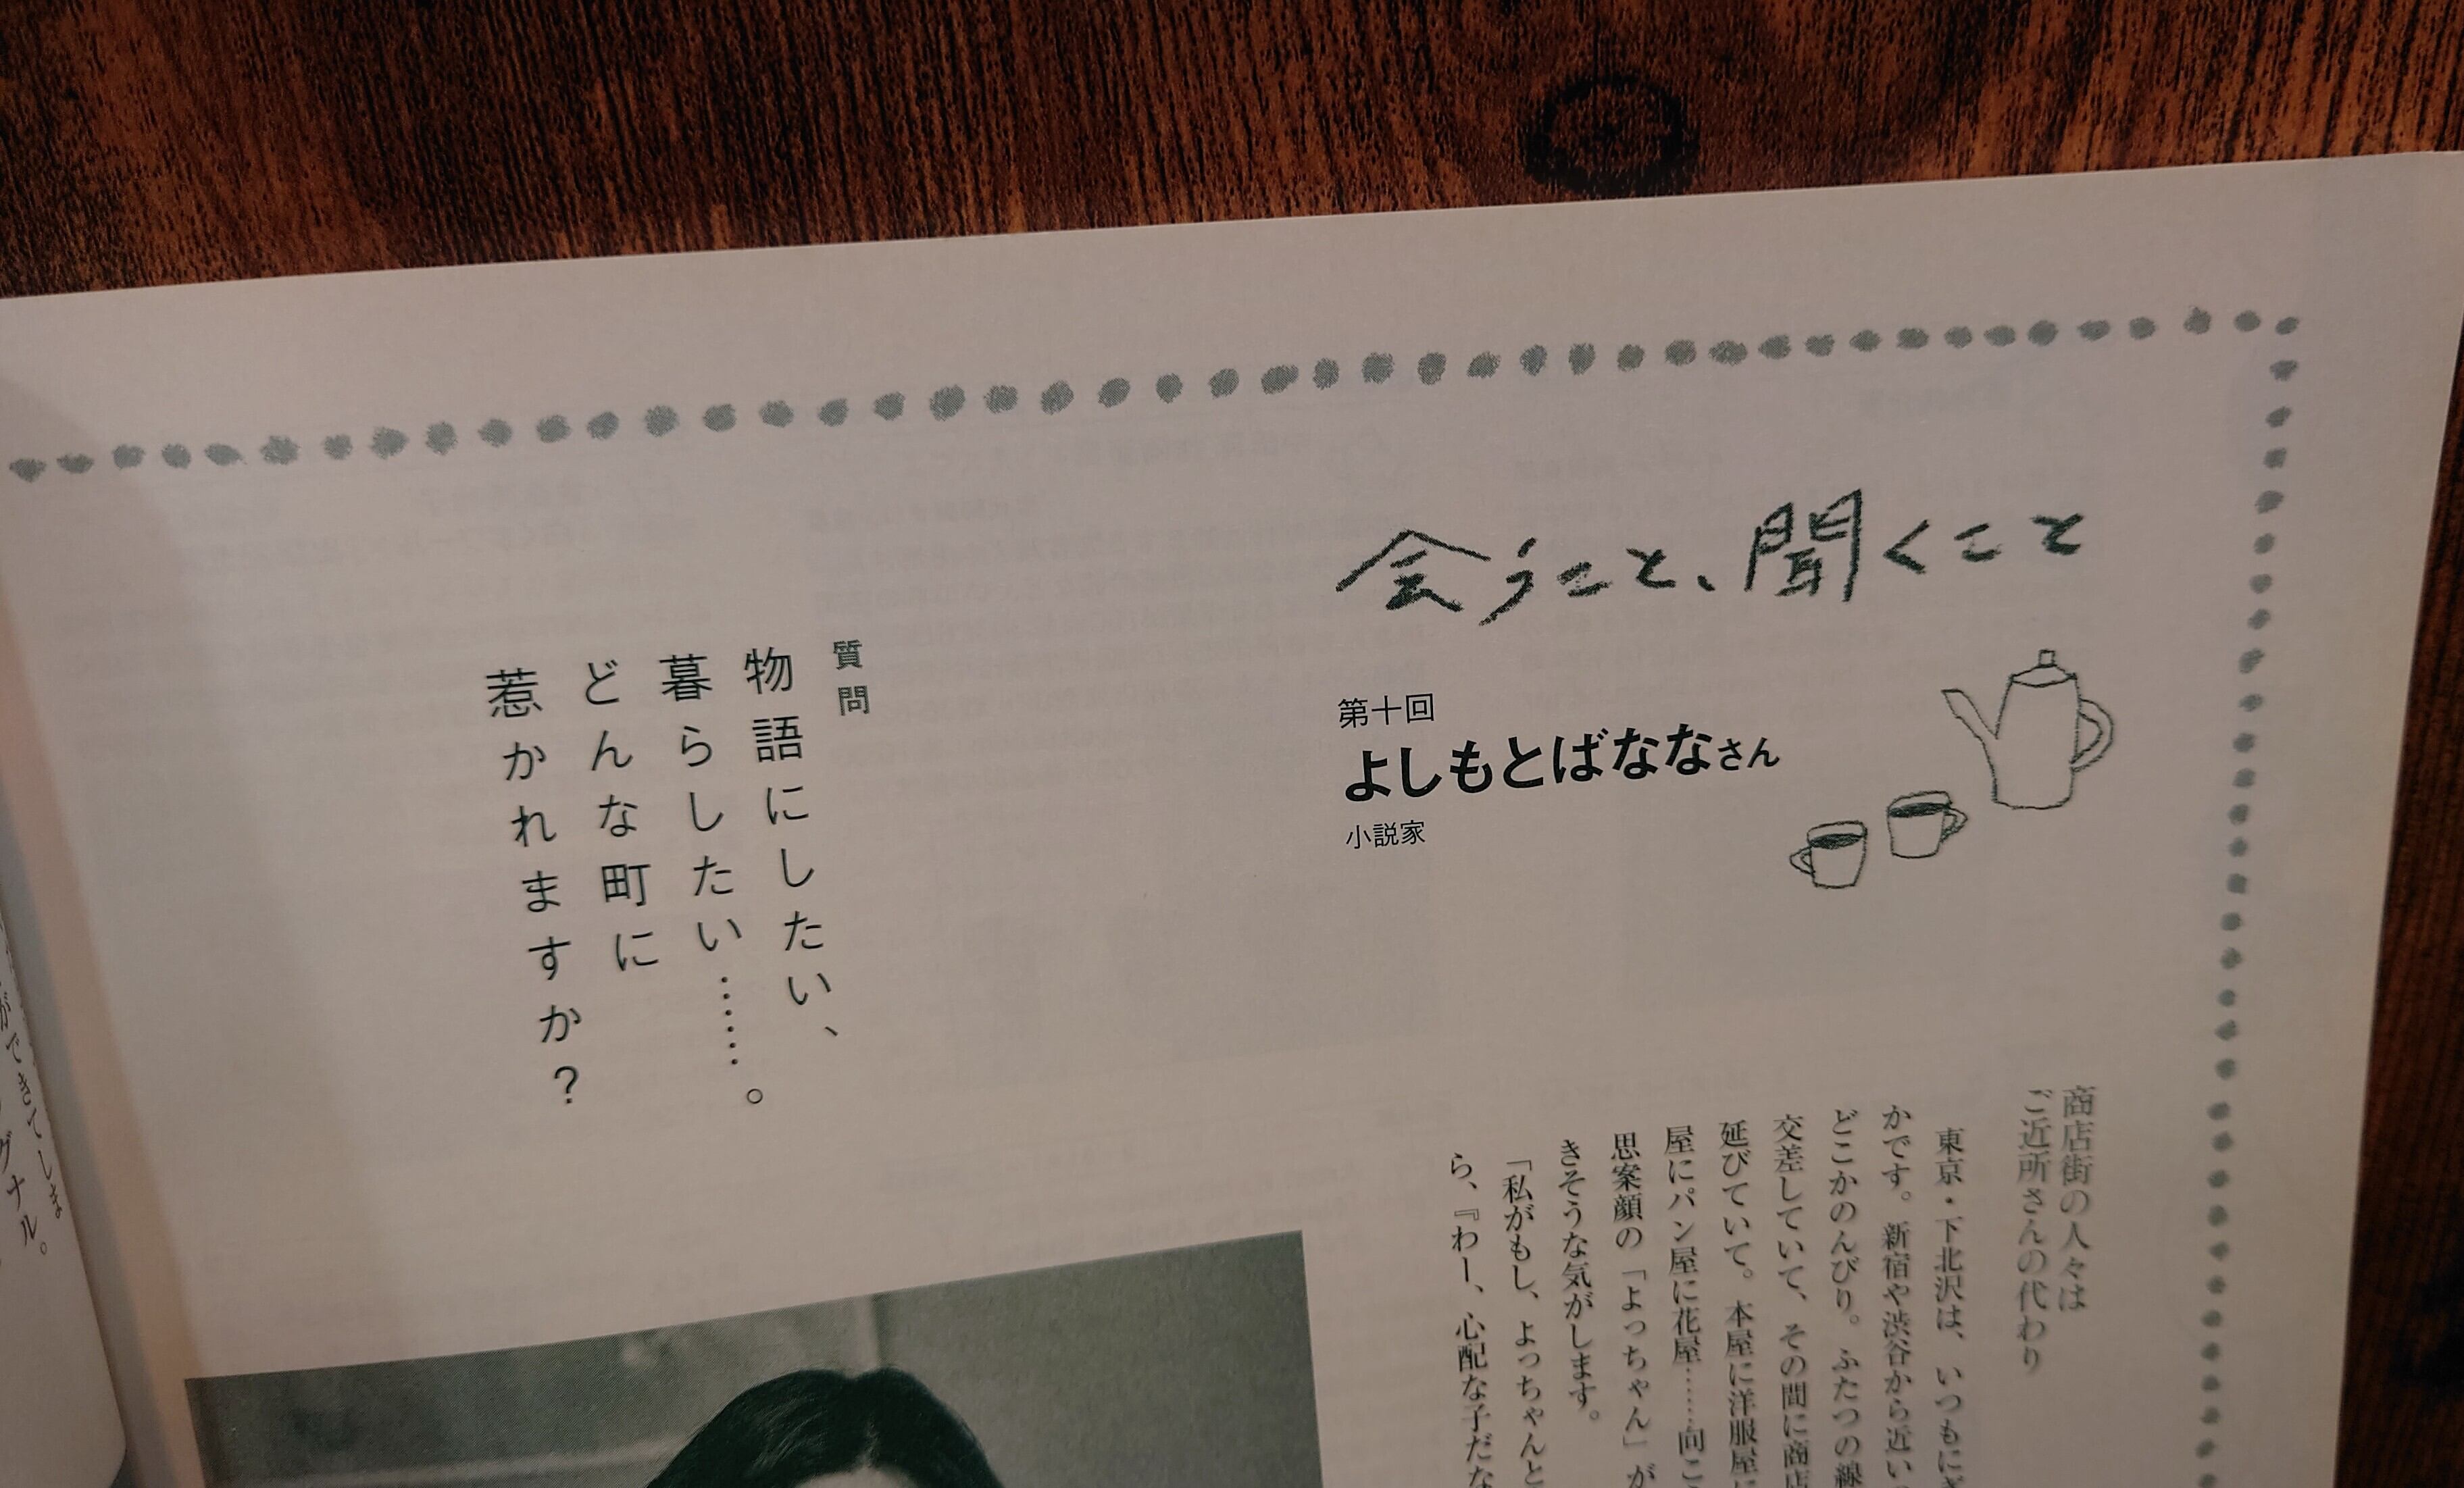 会うこと、聞くこと
第十回
よしもとばななさん
小説家
質問
物語にしたい、
暮らしたい……。
どんな町に
惹かれますか？
商店街の人々は
ご近所さんの代わり
東京・下北沢は、いつもにぎ
かです。新宿や渋谷から近い
どこかのんびり。ふたつの線
交差していて、その間に商店
延びていて。本屋に洋服屋に
屋にパン屋に花屋……向こ
思案顔の「よっちゃん」が
きそうな気がします。
「私がもし、よっちゃんと
ら、『わー、心配な子だな
ができてしま
グナル。